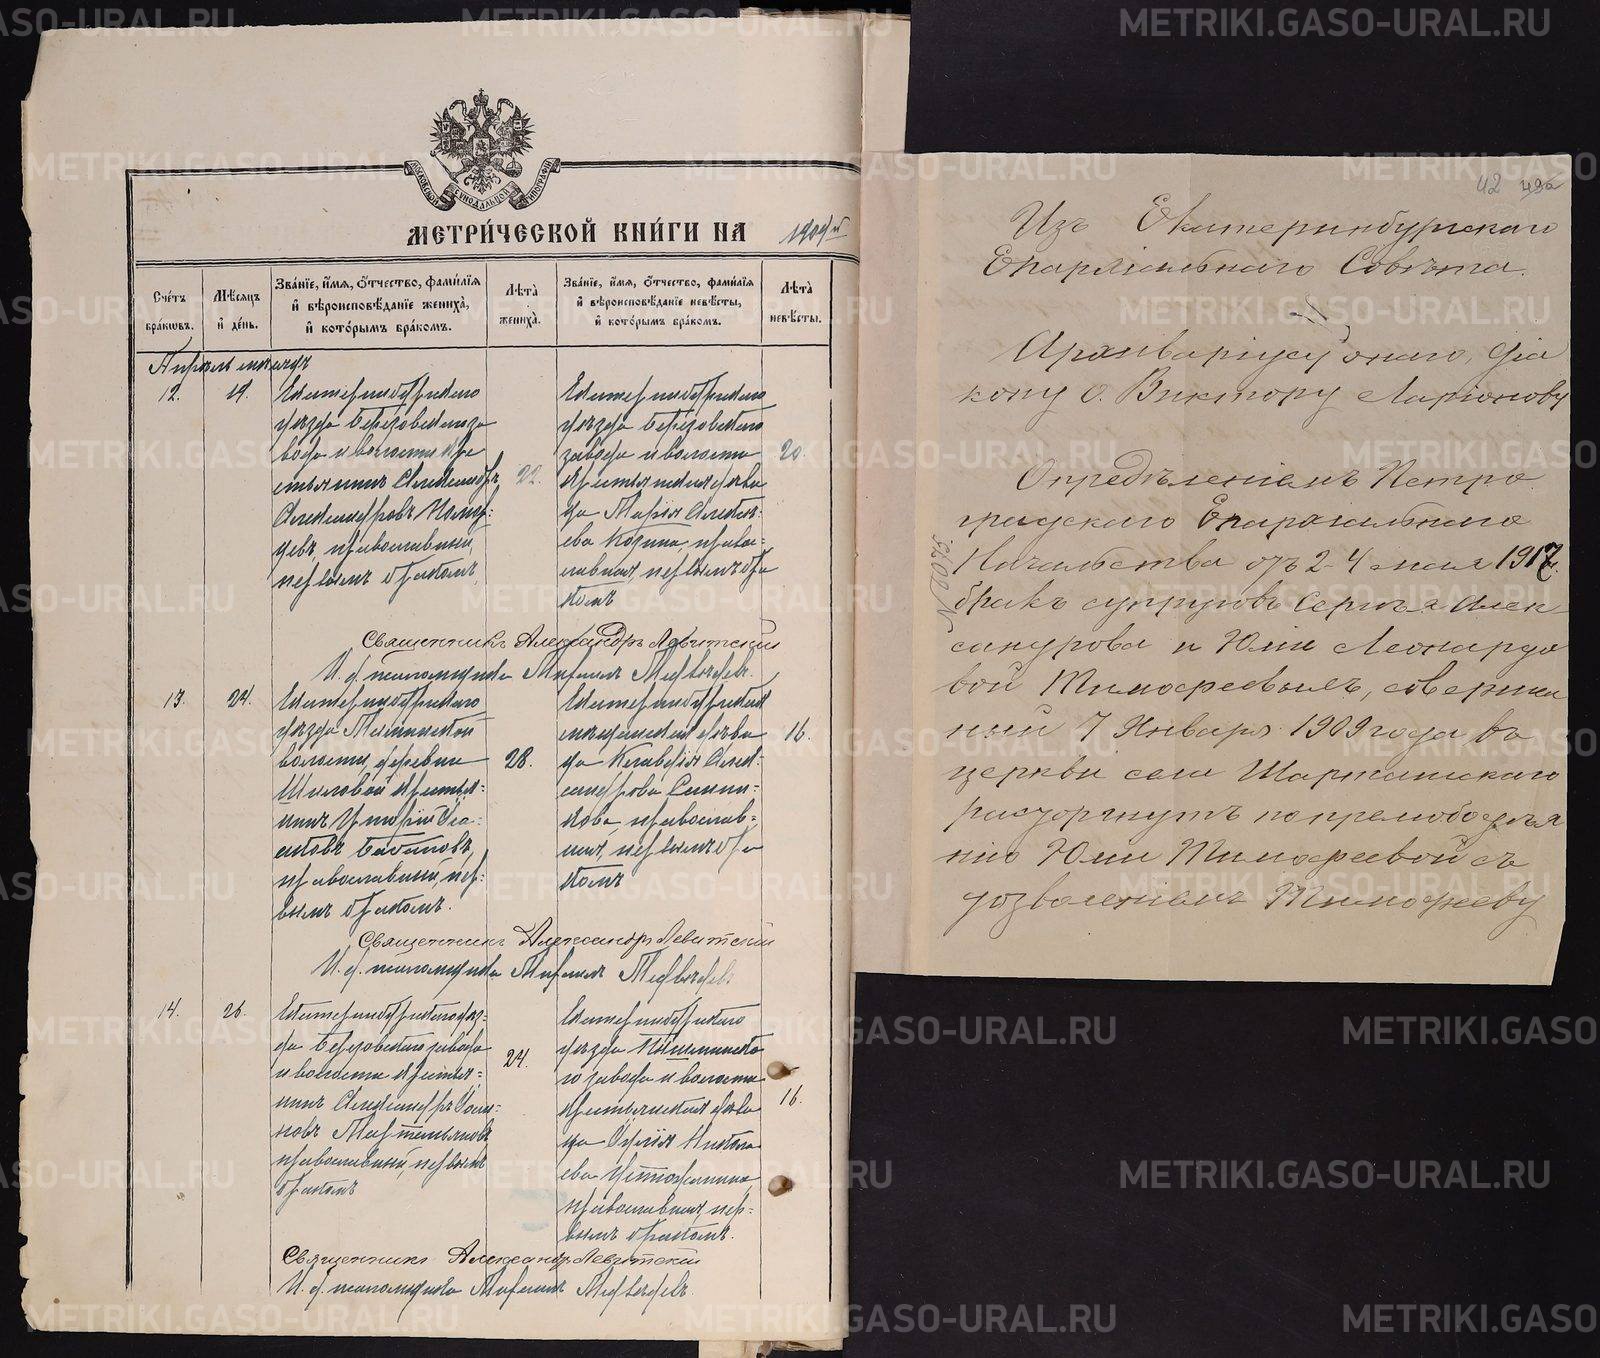 МОСКОВСКОЙ СѴНОДАЛЬНОЙ ТИПОГРАФІИ
МЕТРИ́ЧЕСКОЙ КНИ́ГИ НА 1909й
Сче́тъ бра́ковъ.
Мѣ́сяцъ и҆ де́нь.
Зва́нїе, и҆́мя, ѻ҆́тчество, фами́лїя
и҆ вѣроисповѣ́данїе жениха̀,
и҆ кото́рымъ бра́комъ.
Лѣта̀ жениха̀.
Зва́нїе, и҆́мя, ѻ҆́тчество, фами́лїя
и҆ вѣроисповѣ́данїе невѣ́сты,
и҆ кото́рымъ бра́комъ.
Лѣта̀ невѣ́сты.
Апрѣль мѣсяцъ
12.
19.
Екатеринбургскаго
уѣзда Березовскаго за
вода и волости кре
стьянинъ Александръ
Александровъ
цевъ, православный,
первымъ бракомъ,
22.
Екатеринбургскаго
уѣзда Березовскаго
завода и волости
крестьянская дѣви
ца Марія Алексѣ-
ева Козина, право-
славная, первымъ бра
комъ
20.
Священникъ Александръ Левитскій
И. д. псаломщика Михаилъ Медвѣдевъ.
13.
24.
Екатеринбургскаго
уѣзда
волости, деревни
Шиловой крестья-
нинъ Григорій
Бабиновъ,
православный, пер-
вымъ бракомъ.
28.
Екатеринбургская
мѣщанская дѣви
ца Клавдія Алек-
сандрова
кова, православ-
ная, первымъ бра
комъ
16.
Священникъ Александръ Левитскій
И. д. псаломщика Михаилъ Медвѣдевъ
14.
26.
Екатеринбургскаго уѣз-
да Березовскаго завода
и волости крестья-
нинъ Александръ
новъ Мартемьяновъ
православный, первымъ
бракомъ
24.
Екатеринбургскаго
уѣзда Пышминска
го завода и волости
крестьянская дѣви
ца Никола
ева
православная, пер-
вымъ бракомъ.
16.
Священникъ Александръ Левитскій
И. д. псаломщика Михаилъ Медвѣдевъ.
42 49а
Изъ Екатеринбургскаго
Епархіальнаго Совѣта.
Архиваріусу онаго, діа
кону о. Виктору Ларіонову
Опредѣленіемъ Петро
градскаго Епархіальнаго
Начальства отъ 2-4 мая 1917 г.
бракъ супруговъ Сергѣя Алек
сандрова и Юліи Леонардо
вой Тимофеевыхъ, совершен
ный 7 Января 1909 года въ
церкви села Шарташскаго
расторгнутъ по прелюбодѣя
нію Юліи Тимофеевой съ
дозволеніемъ Тимофееву
METRIKI.GASO-URAL.RU